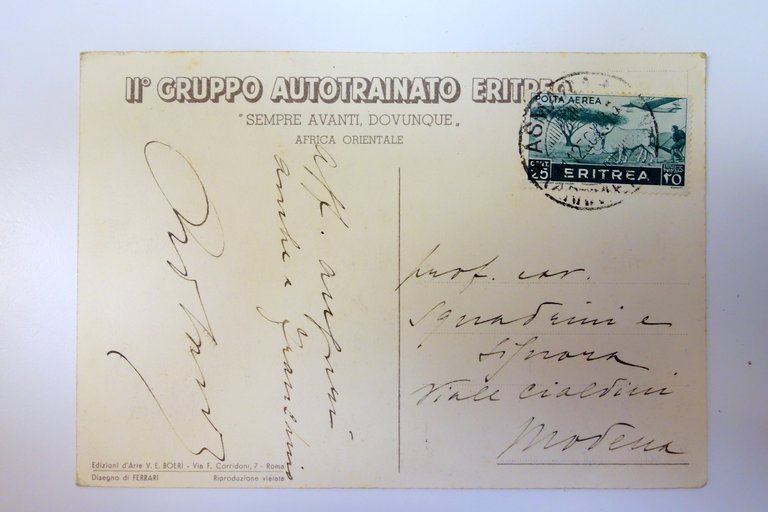 II° GRUPPO AUTOTRAINATO ERITREO
"SEMPRE AVANTI, DOVUNQUE"
AFRICA ORIENTALE
POSTA AEREA
CENT. 25
ERITREA
٢٥
ASMARA
aff. auguri
anche a
prof. cav.
Squadrini e
Signora
Viale Cialdini
Modena
Edizioni d'Arte V. E. BOERI - Via F. Corridoni, 7 - Roma
Disegno di FERRARI
Riproduzione vietata